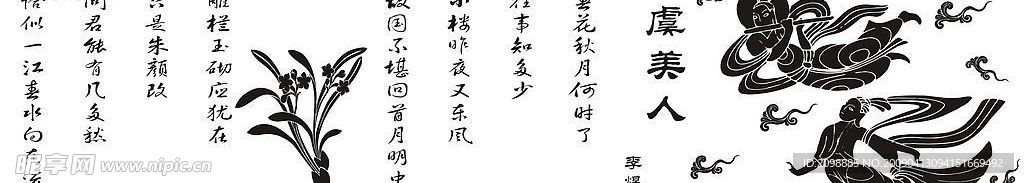 虞美人
李煜
春花秋月何时了
往事知多少
小楼昨夜又东风
故国不堪回首月明中
雕栏玉砌应犹在
只是朱颜改
问君能有几多愁
恰似一江春水向东流
昵享网 www.nipic.cn
ID:2098883 NO:20090413094151669492